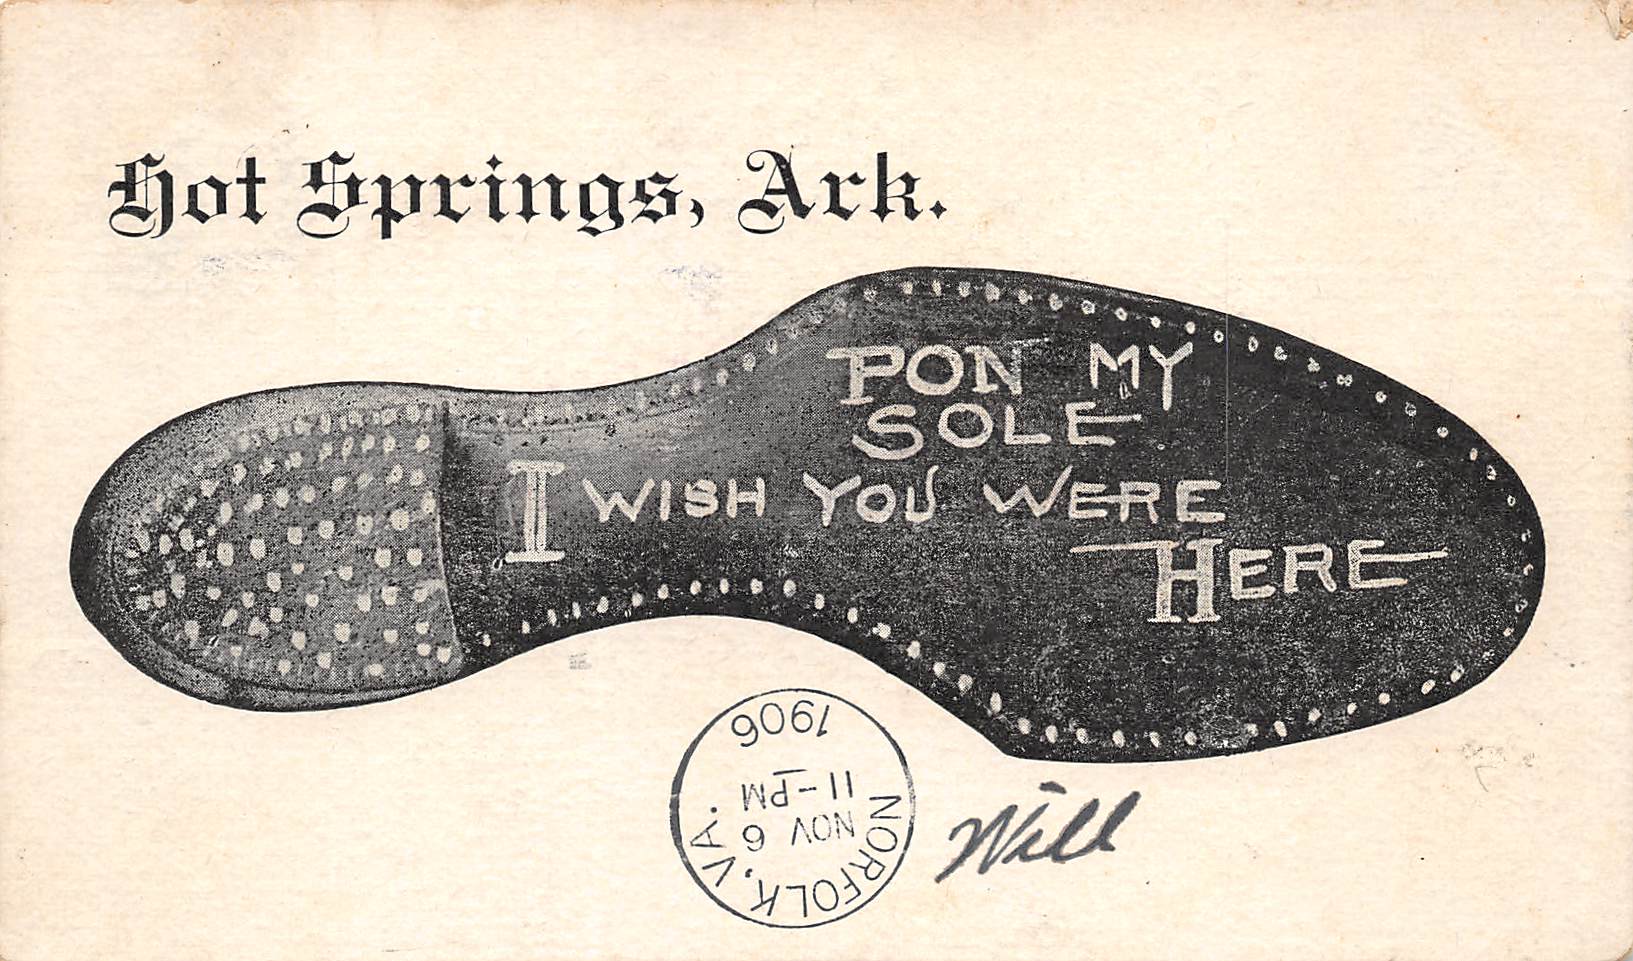 Hot Springs, Ark.
PON MY
SOLE
I WISH YOU WERE
HERE
NORFOLK, VA.
NOV 6
11-PM
1906
Will